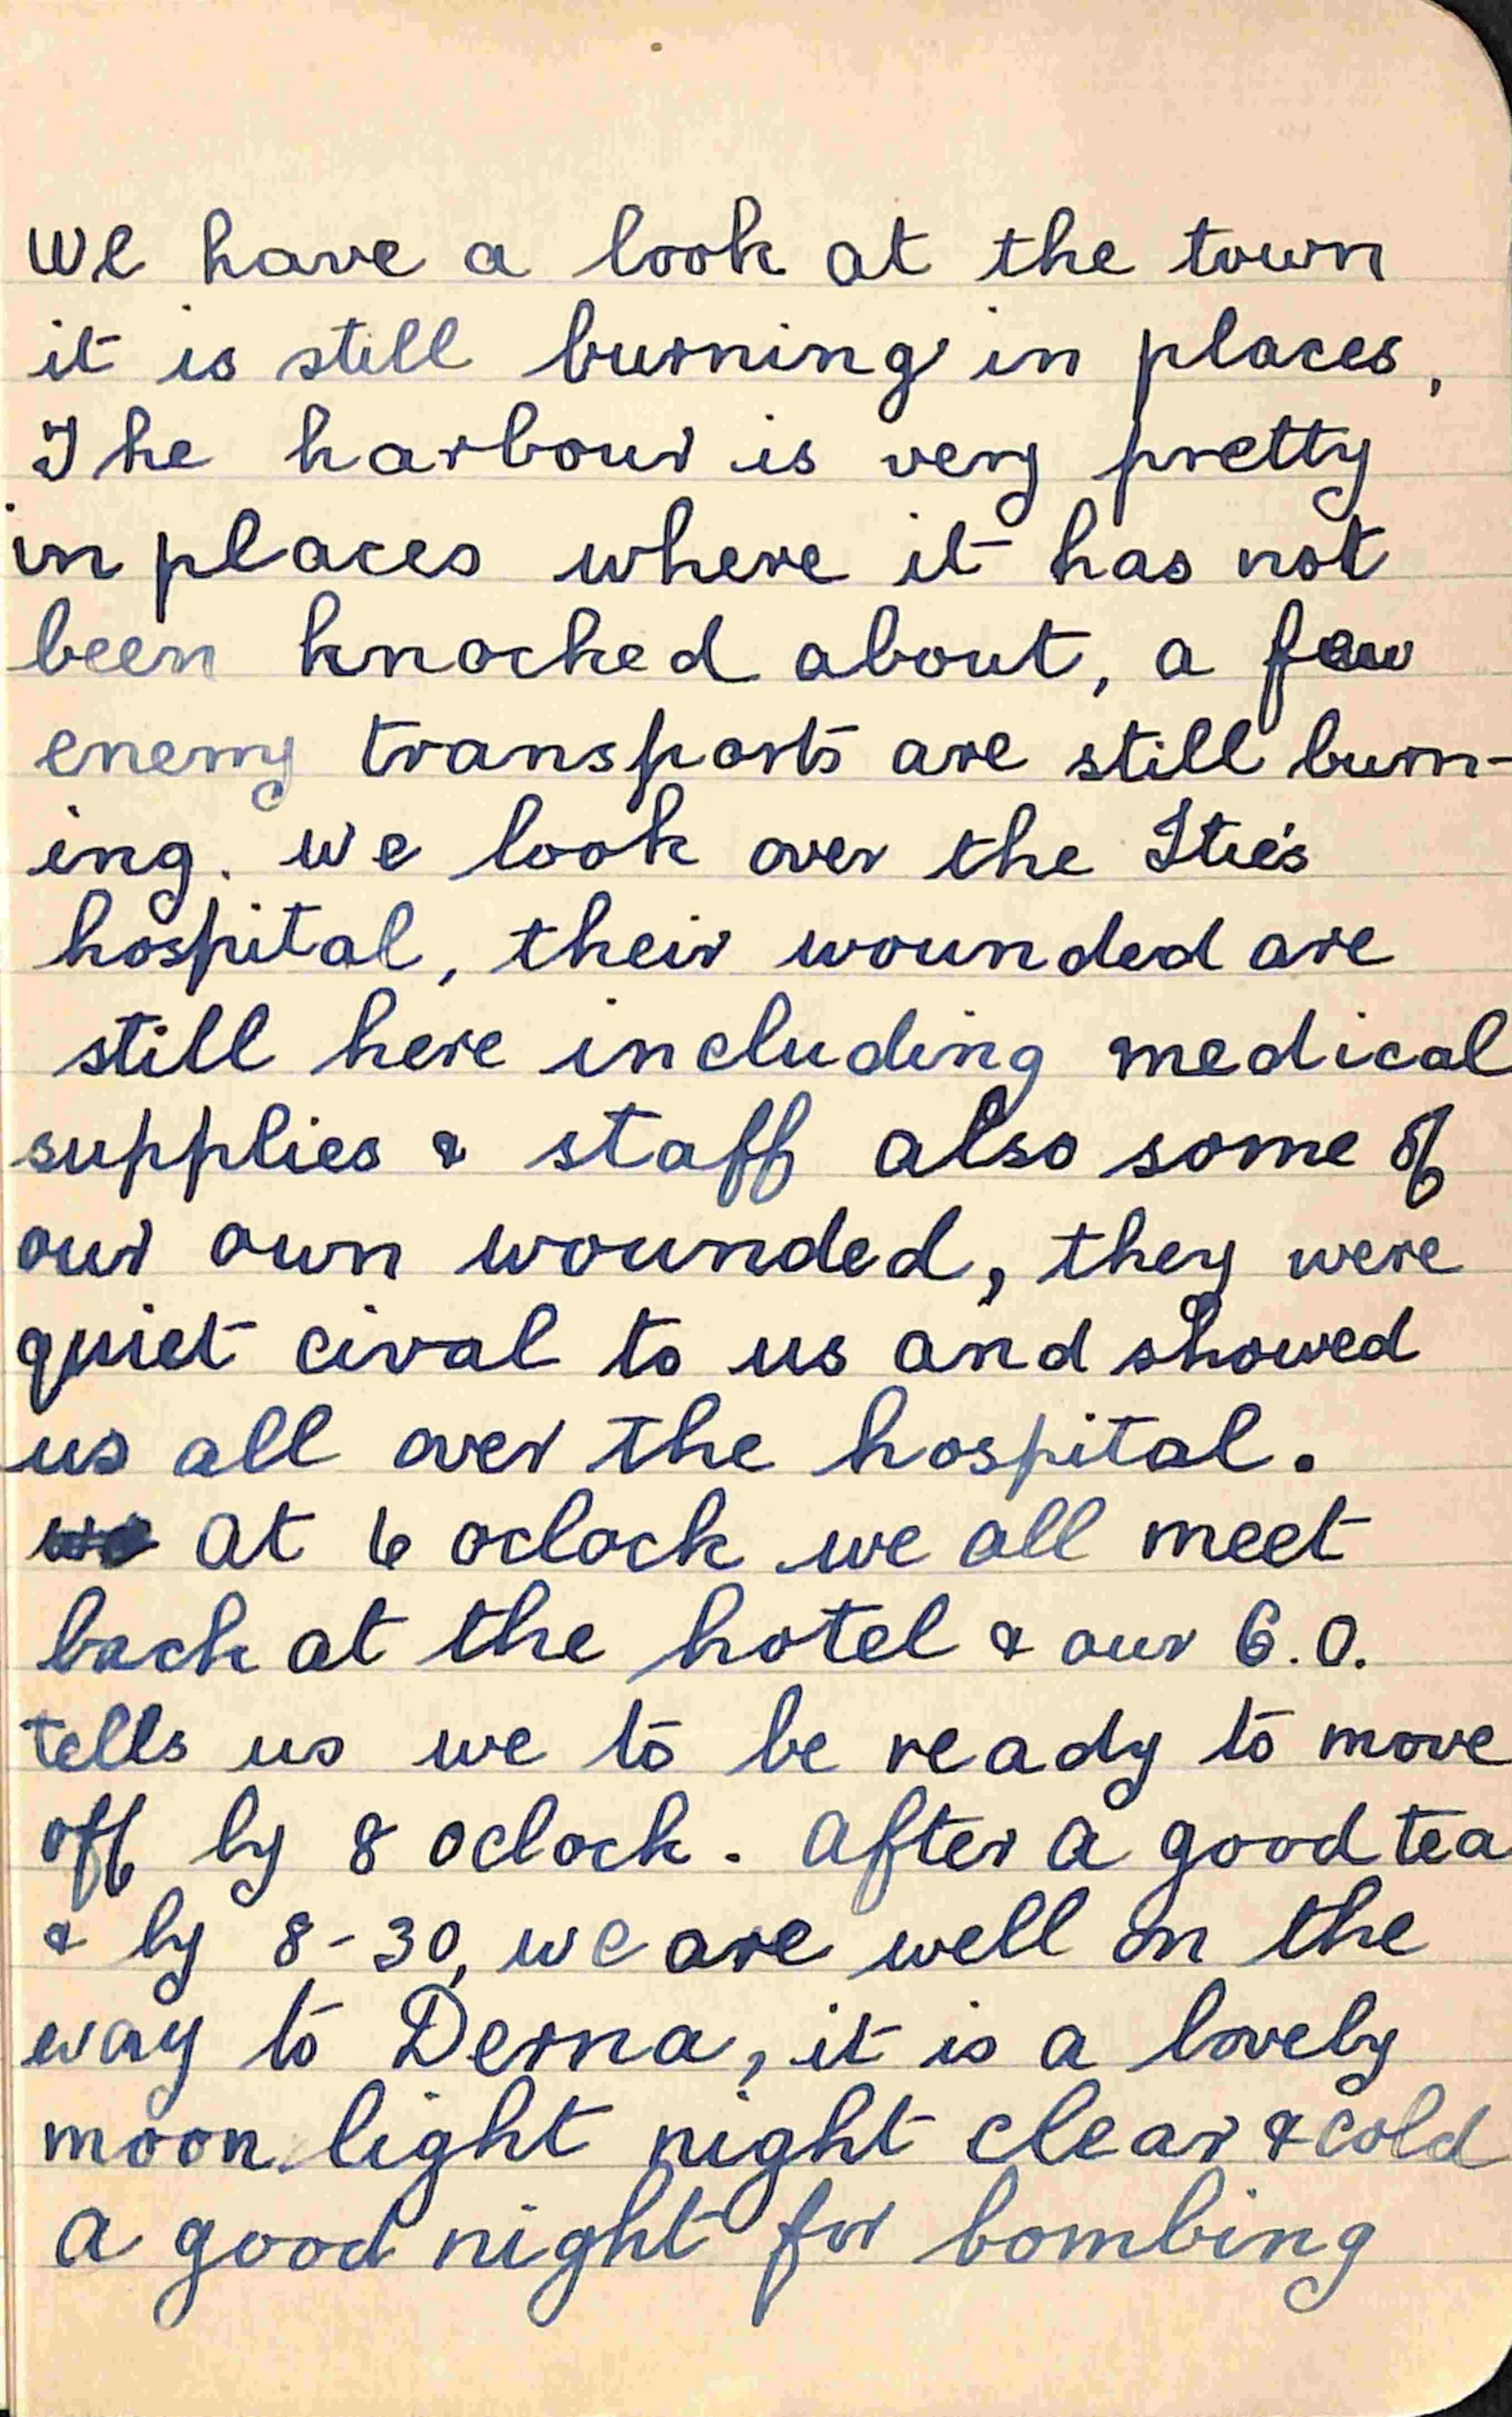 we have a look at the town
it is still burning in places,
The harbour is very pretty
in places where it has not
been knocked about, a few
enemy transports are still burn-
ing. we look over the Itie's
hospital, their wounded are
still here including medical
supplies & staff also some of
our own wounded, they were
quiet cival to us and showed
us all over the hospital.
we at 6 oclock we all meet
back at the hotel & our C.O.
tells us we to be ready to move
off by 8 oclock. After a good tea
& by 8-30, we are well on the
way to Derna, it is a lovely
moon light night clear & cold
a good night for bombing